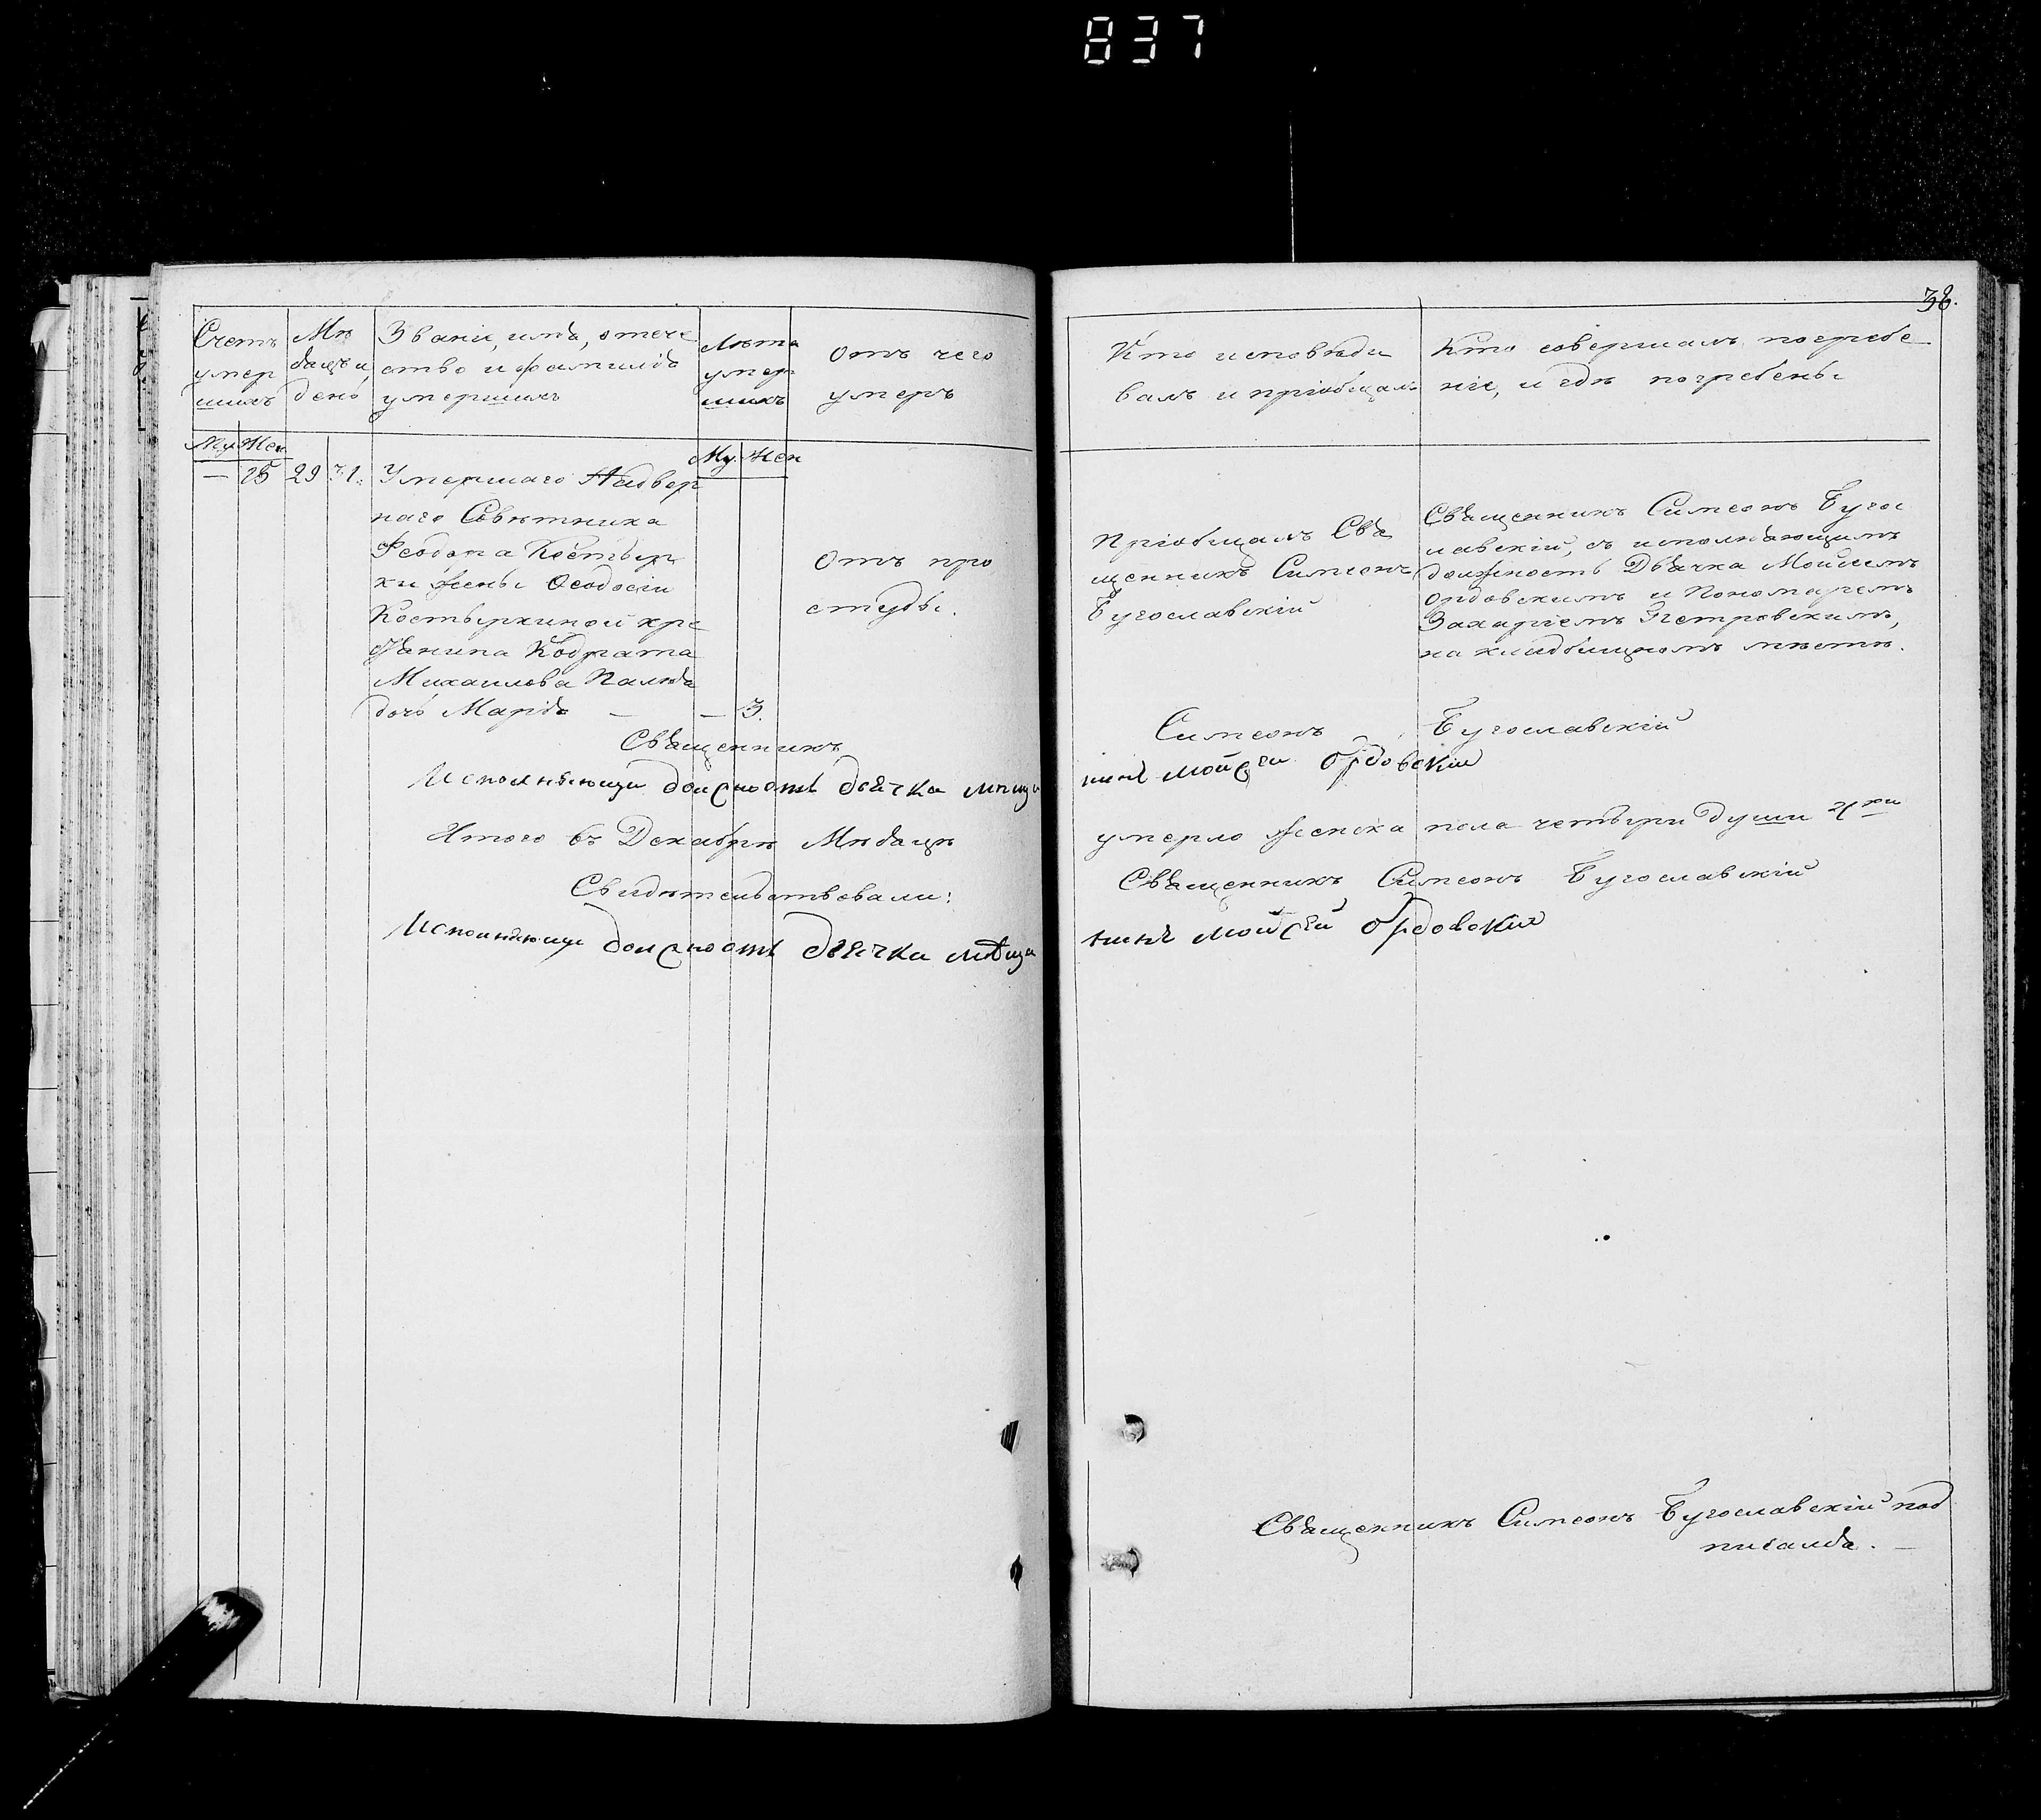 837
38.
Счетъ умер шихъ
Мѣ сяцъ и день
Званіе, имя, отече
ство и фамилія
умершихъ
Лѣта умер шихъ
Отъ чего
умеръ
Кто исповѣды
валъ и пріобщалъ
Кто совершалъ погребе
ніе, и гдѣ погребены
Му. Жен.
Му. Жен
— 25 29 31. Умершаго Надвор
наго Совѣтника
Феодора Костыр
ки жены Ѳеодосіи
Костыркиной кре
стьянина Кодрата
Михаилова
дочь Марія — — 3.
Отъ про
студы.
Пріобщалъ Свя
щенникъ Симеонъ
Бугославскій
Священникъ Симеонъ Буго
славскій, съ исполняющимъ
должность Дьячка Мойсеемъ
Ордовскимъ и Пономаремъ
Захаріемъ Петровскимъ,
на кладбищномъ мѣстѣ.
Священникъ Симеонъ Бугославскій
Исполняющи должность дьячка мѣща нинъ Мойсей Ордовскии
Итого въ Декабрѣ Мѣсяцѣ умерло женска пола четыри души 4ри
Свидѣтельствовали: Священникъ Симеонъ Бугославскій
Исполняющи должность дьячка мѣща нинъ Мойсей Ордовскии
Священникъ Симеонъ Бугославскій под
писался. —